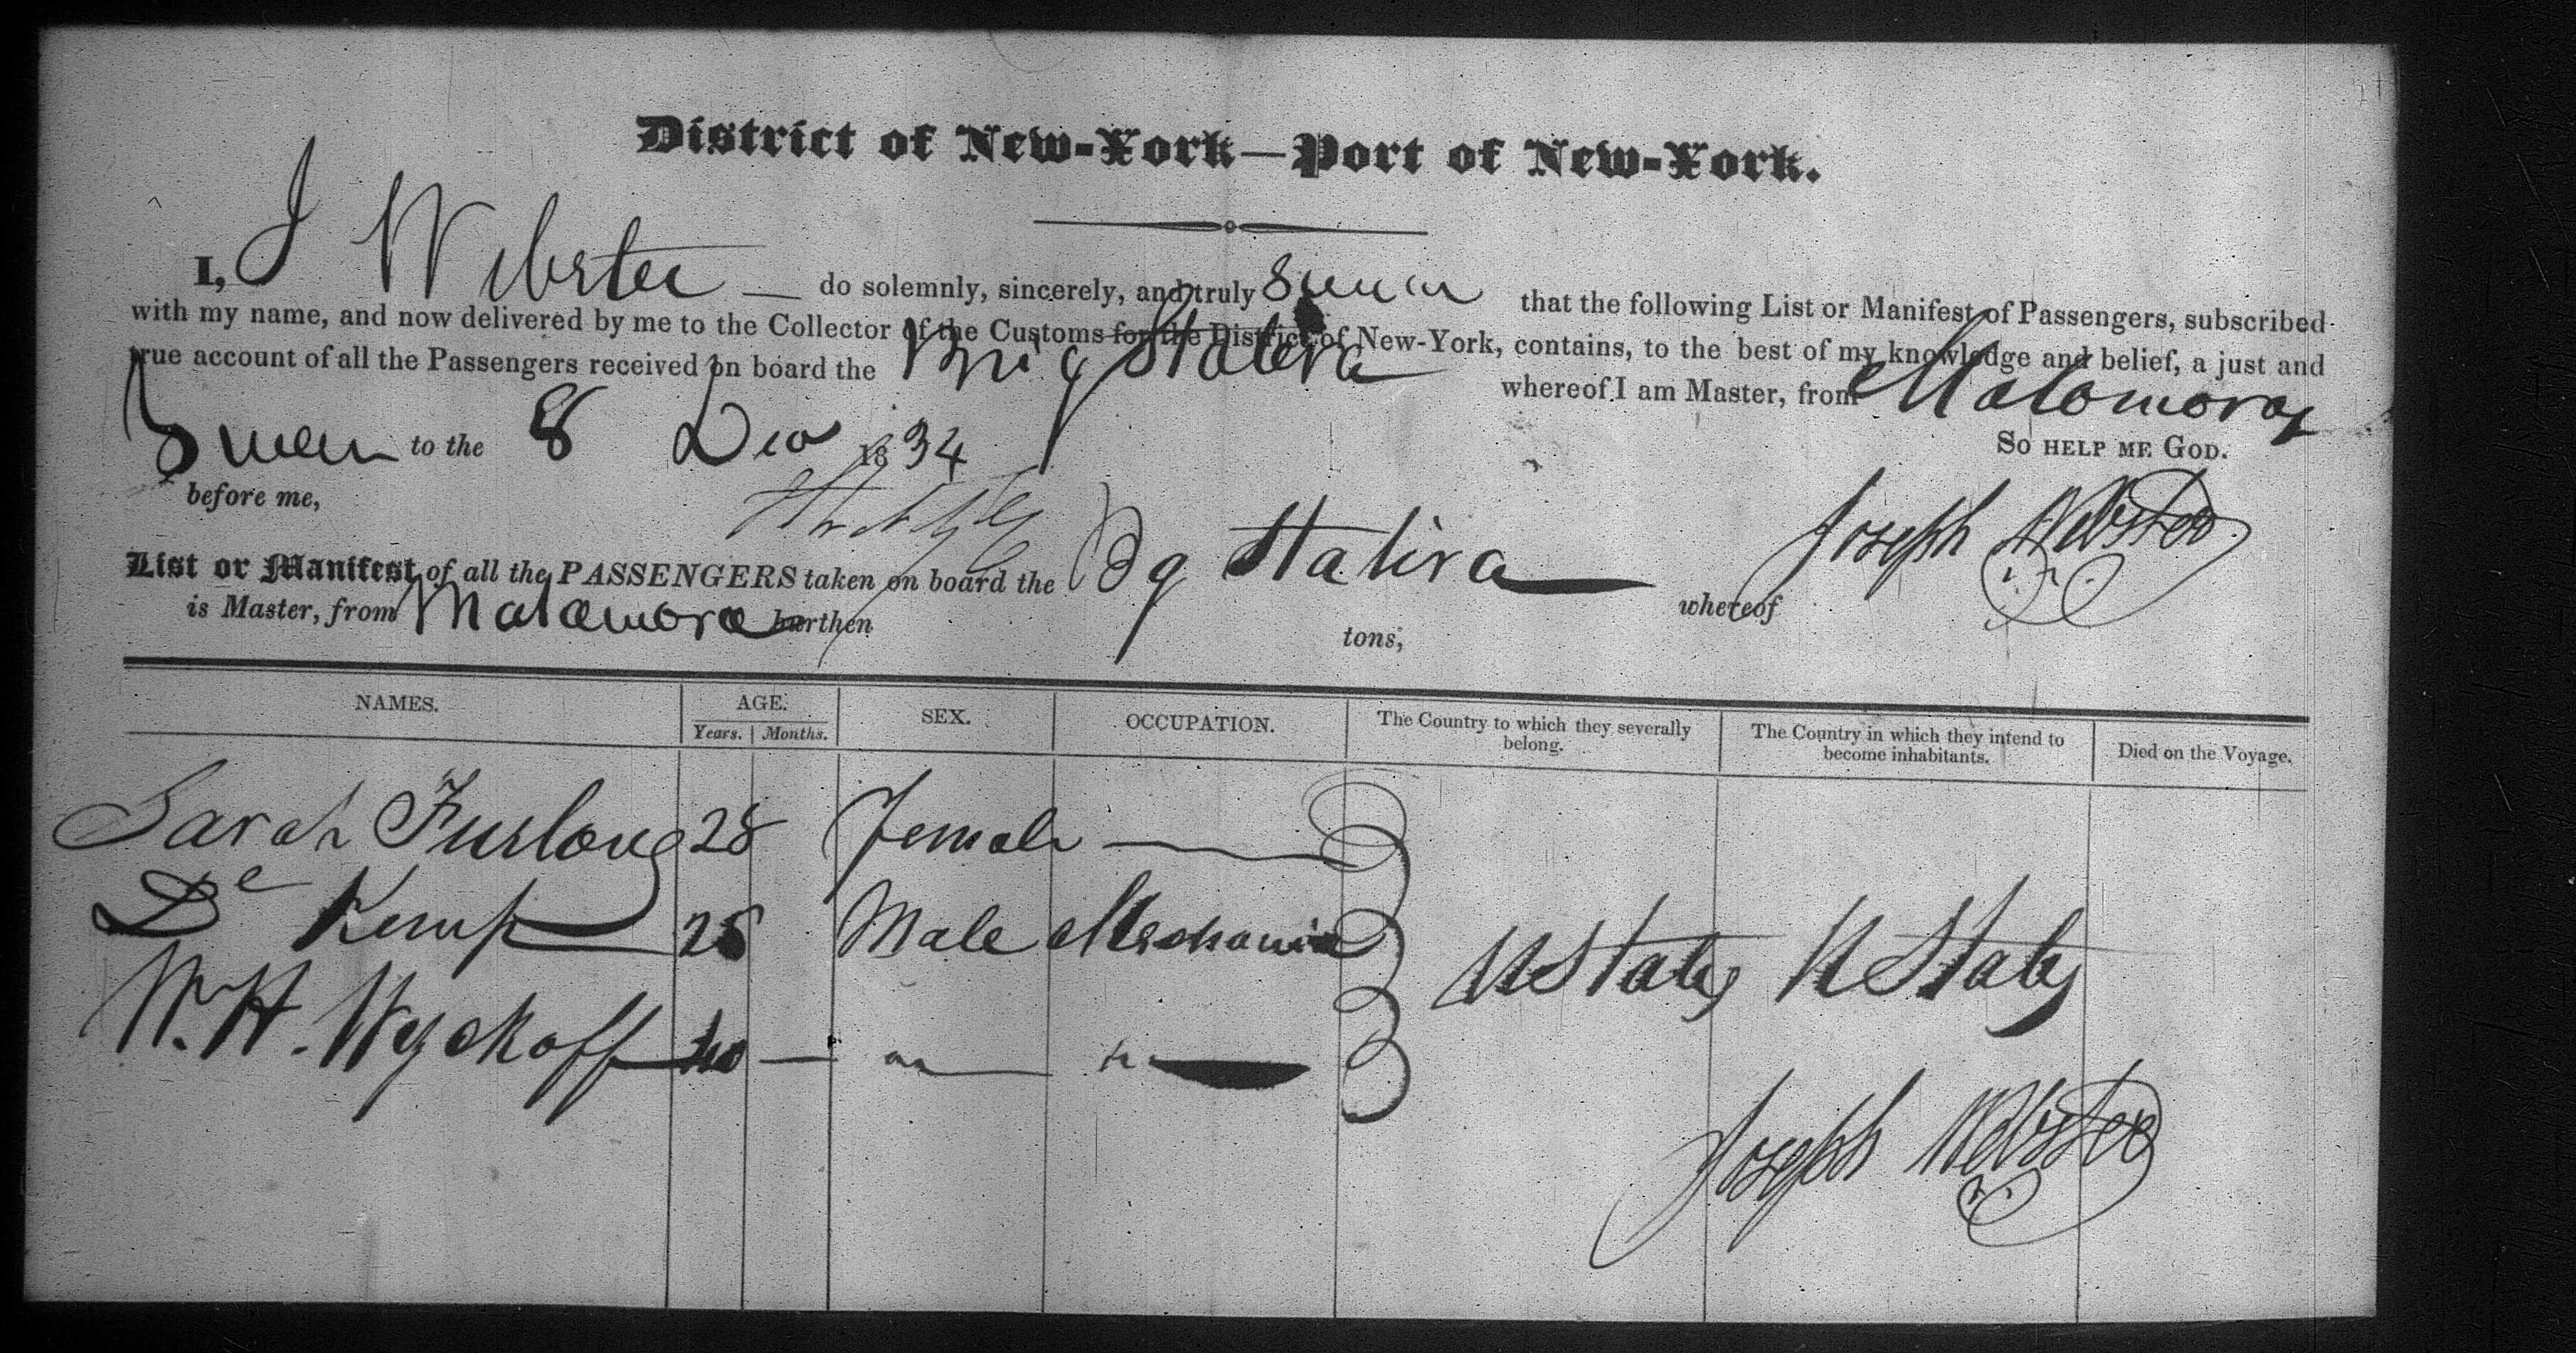 District of New-York—Port of New-York.
I, J Webster — do solemnly, sincerely, and truly Swear that the following List or Manifest of Passengers, subscribed
with my name, and now delivered by me to the Collector of the Customs for the District of New-York, contains, to the best of my knowledge and belief, a just and
true account of all the Passengers received on board the Brig Statira whereof I am Master, from Matamoras
Sworn to the 8 Dec 1834
So help me God.
before me,
Joseph Webster
List or Manifest of all the PASSENGERS taken on board the Bg Statira whereof
is Master, from Matamora burthen tons,
NAMES. AGE. SEX. OCCUPATION. The Country to which they severally belong. The Country in which they intend to become inhabitants. Died on the Voyage.
Years. Months.
Sarah Furlong 28 Female —
De Kemp 25 Male Mechanic
U States U States
W. H. Wyckoff 40 —
Joseph Webster